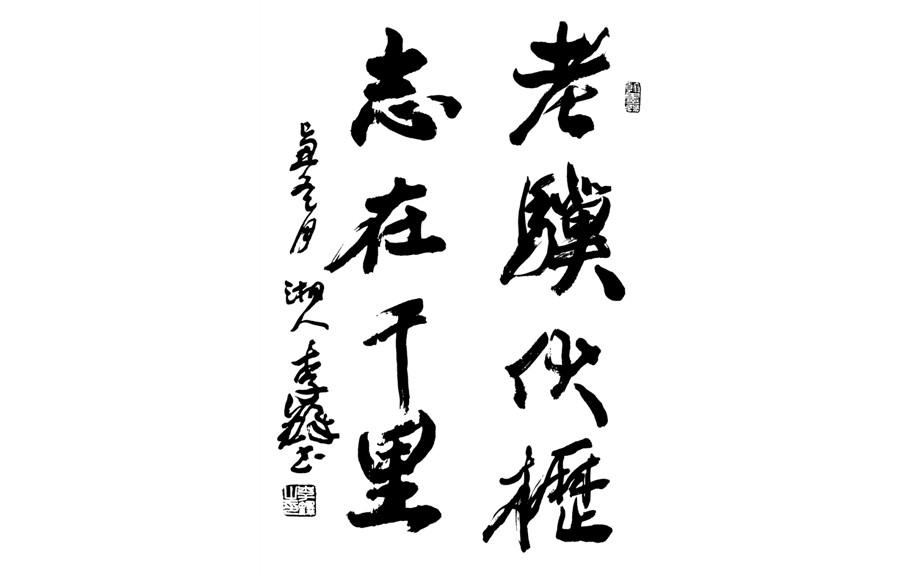 老驥伏櫪
志在千里
五月 湘人 李 书